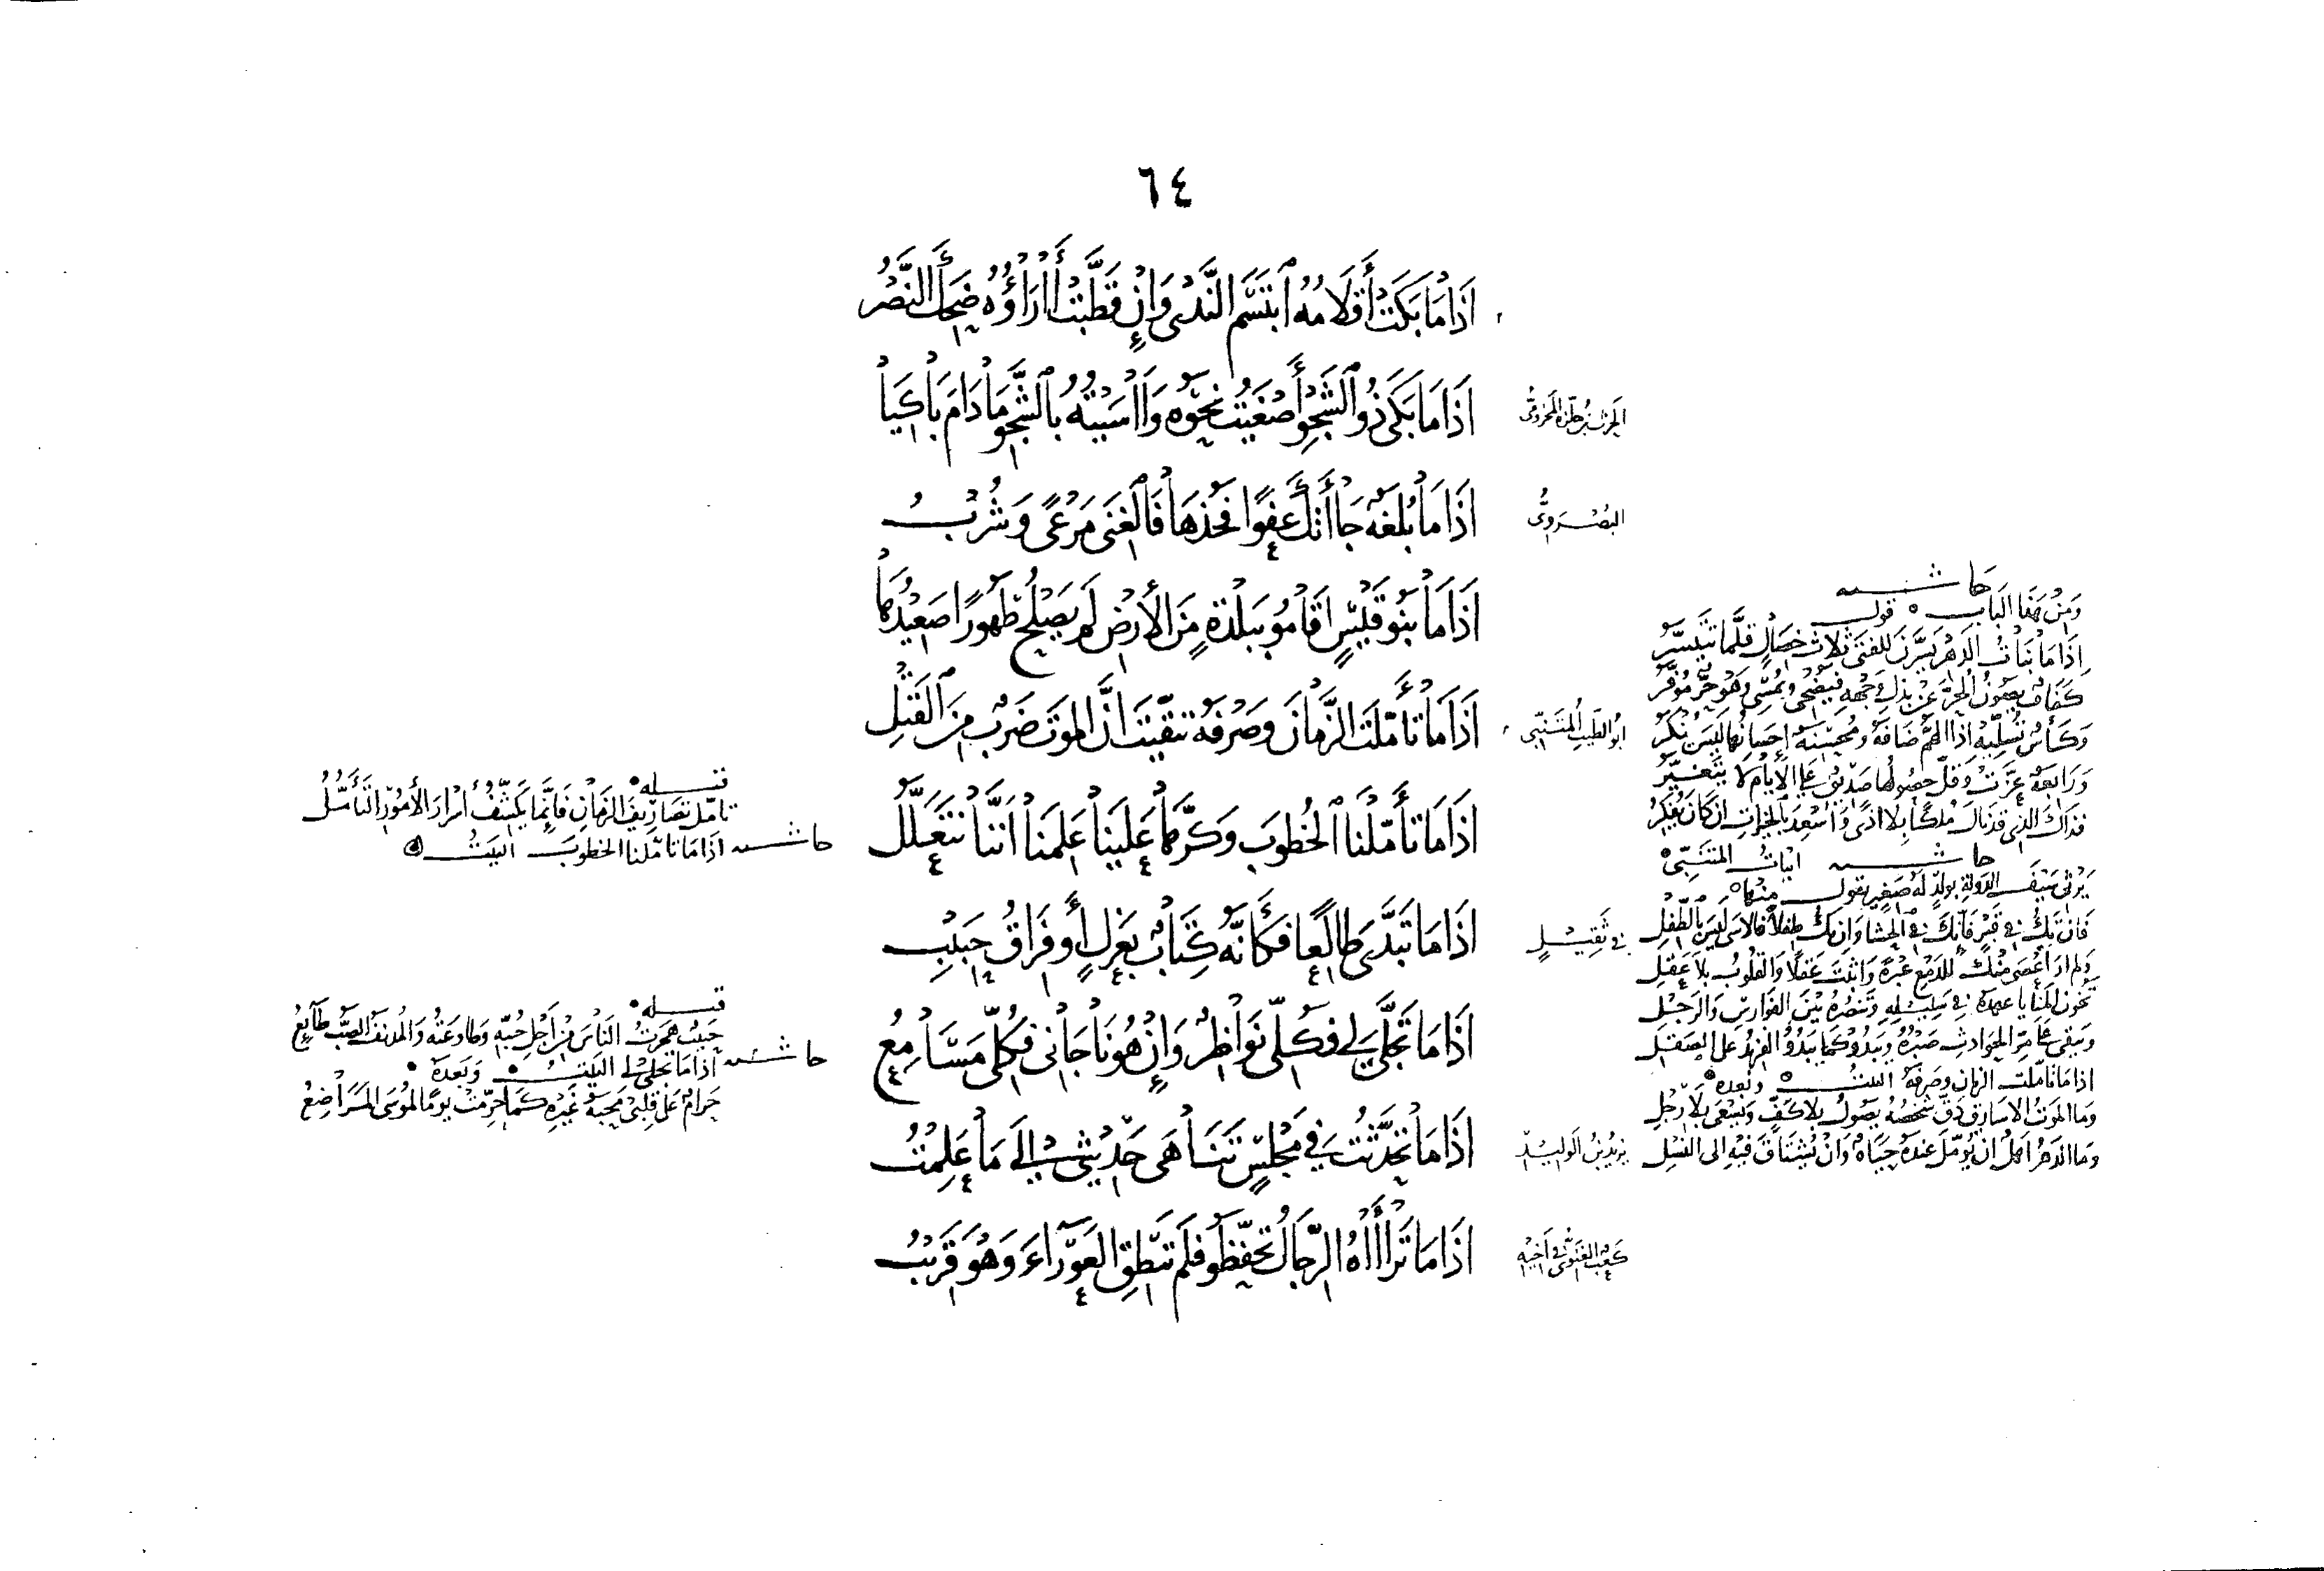 ٦٤
اذَا مَا بَكَتْ أَقْلَامُهُ ٱبْتَسَمَ النَّدَى وَإِنْ قَطَّبَتْ اٰرَاؤُهُ ضَحِكَ النَّصْرُ
اذَا مَا بَكَى ذُو ٱلشَّجْوِ أَصْغَيْتُ نَحْوَهُ وَاٰسَيْتُهُ بِالشَّجْوِ مَا دَامَ بَاكِيَا
البُصْرَوِيُّ
اذَا مَا بُلْغَةٌ جَاأَتْكَ عَفْوًا فَخُذْهَا فَالْغِنَى مَرْعًى وَشُرْبُ
اذَا مَا بَنُو قَيْسٍ اقَامُو بِبَلْدَةٍ مِنَ الأَرْضِ لَمْ يَصْلُحْ طَهُورًا صَعِيْدُهَا
ابُو الطَّيِّبِ المُتَنَبِّي
اذَا مَا تَأَمَّلْتَ الزَّمَانَ وَصَرْفَهُ تَيَقَّنْتَ انَّ المَوْتَ ضَرْبٌ مِنَ ٱلْقَتْلِ
اذَا مَا تَأَمَّلْنَا ٱلْخُطُوبَ وَكَرَّهَا عَلَيْنَا عَلِمْنَا انَّنَا نَتَعَلَّلُ
فِي ثَقِيْلٍ
اذَا مَا تَبَدَّى طَالِعًا فَكَأَنَّهُ كِتَابٌ بِعَزْلٍ أَو فِرَاقُ حَبِيْبِ
اذَا مَا تَجَلَّى لِي فَكُلِّي نَوَاظِرٌ وَإِنْ هُوَ نَاجَانِي فَكُلِّي مَسَامِعُ
يَزِيْدُ بْنُ الوَلِيْدِ
اذَا مَا تَحَدَّثْتُ فِي مَجْلِسٍ تَنَاهَى حَدِيْثِي الَى مَا عَلِمْتُ
كَعْبٌ الغَنَوِيُّ فِي أَخِيْهِ
اذَا مَا تَرَاأَاهُ الرِّجَالُ تَحَفَّظُو فَلَمْ تَنْطِقِ العَوْرَآءَ وَهُوَ قَرِيْبُ
حاشيه
وَمِنْ هَذَا البَابِ قول
اذَا مَا بَنَاتُ الدَهْرِ يَسَّرْنَ لِلفَتَى ثَلَاثَ خِصَالٍ قَلَّمَا تَتَيَسَّرُ
كَفَافٌ يَصُونُ الحُرَّ عَنْ بَذْلِ وَجْهِهِ فَيُضْحِي وَيُمْسِي وَهْوَ حُرٌّ مُوَقَّرُ
وَكَأْسٌ تُسَلِّيْهِ اذَا الهَمُّ ضَافَهُ وَمُحْسِنَةٌ إِحْسَانُهَا لَيْسَ يُنْكَرُ
وَرَابِعَةٌ عَزَّتْ وَقَلَّ حُصُولُهَا صَدِيْقٌ عَلَى الأَيَّامِ لَا يَتَغَيَّرُ
فَذَاكَ الَّذِي قَدْ نَالَ مُلْكًا بِلَا اذًى وَاُسْعِدَ بِالخَيْرَاتِ انْ كَانَ يَفْكِرُ
حاشيه ابْيَاتُ المُتَنَبِّي
يَرْثِي سَيْفَ الدَوْلَةِ بِوَلَدٍ لَهُ صَغِيْرٍ يَقُولُ مِنْهَا
فَانْ تَكُ فِي قَبْرٍ فَإِنَّكَ فِي الحَشَا وَانْ تَكُ طِفْلًا فَالأَسَى لَيْسَ بِالطِّفْلِ
وَلَمْ ارَ اعْصَى مِنْكَ لِلدَمْعِ عَبْرَةً وَاثْبَتَ عَقْلًا وَالقُلُوبُ بِلَا عَقْلِ
تَخُونُ المَنَايَا عَهْدَهُ فِي سَلِيْلِهِ وَتَنْصُرُهُ بَيْنَ الفَوَارِسِ وَالرَجْلِ
وَيَبْقَى عَلَى مَرِّ الحَوَادِثِ صَبْرُهُ وَيَبْدُو كَمَا يَبْدُو الفِرِنْدُ عَلَى الصَقْلِ
اذَا مَا تَأَمَّلْتَ الزمان وَصَرْفَهُ البيت وَبَعْدَهُ
وَمَا المَوْتُ الا سَارِقٌ دَقَّ شَخْصُهُ يَصُولُ بِلَا كَفٍّ وَيَسْعَى بِلَا رِجْلِ
وَمَا الدَهْرُ اهْلٌ انْ يُؤَمَّلَ عِنْدَهُ حَيَاةٌ وَانْ يُشْتَاقَ فِيْهِ الى النَسْلِ
قبله
تَأَمَّلْ تَصَارِيْفَ الزَمَانِ فَإِنَّمَا يُكَشِّفُ أَسْرَارَ الأُمُوْرِ التَأَمُّلُ
حاشيه اذَا مَا تَأَمَّلْنَا الخطوبَ البَيْتُ
قبله
حَبِيْبٌ هَجَرْتُ النَاسَ مِنْ اجْلِ حُبِّهِ وَطَاوَعْتُهُ وَالمُدْنَفُ الصَبُّ طَآئِعُ
حاشيه اذَا مَا تجلى لي البَيْتُ وَبَعْدَهُ
حَرَامٌ عَلَى قَلْبِي مَحَبَّةُ غَيْرِهِ كَمَا حُرِّمَتْ يَوْمًا لِمُوسَى المَرَاضِعُ